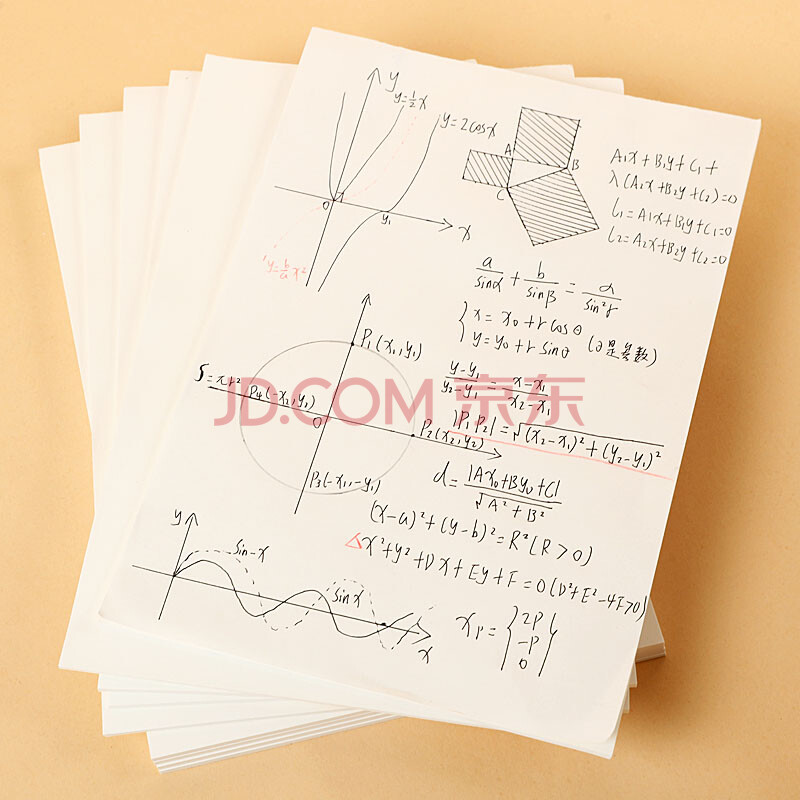 y
y=½x
y=2cosx
O
y₁
x
y=b/a x²
A
B
C
A₁x+B₁y+C₁+
λ(A₂x+B₂y+C₂)=0
l₁=A₁x+B₁y+C₁=0
l₂=A₂x+B₂y+C₂=0
a/sinα + b/sinβ = α/sin²γ
{x=x₀+rcosθ
y=y₀+rsinθ (θ是参数)
P₁(x₁,y₁)
S=πr²
P₄(-x₂,y₂)
O
P₂(x₂,y₂)
P₃(-x₁,-y₁)
(y-y₁)/(y₂-y₁)=(x-x₁)/(x₂-x₁)
JD.COM 京东
|P₁P₂|=√(x₂-x₁)²+(y₂-y₁)²
d=|Ax₀+By₀+C|/√A²+B²
(x-a)²+(y-b)²=R²(R>0)
△x²+y²+Dx+Ey+F=0(D²+E²-4F>0)
y
sin-x
sinx
x
xₚ={2P
-P
0}